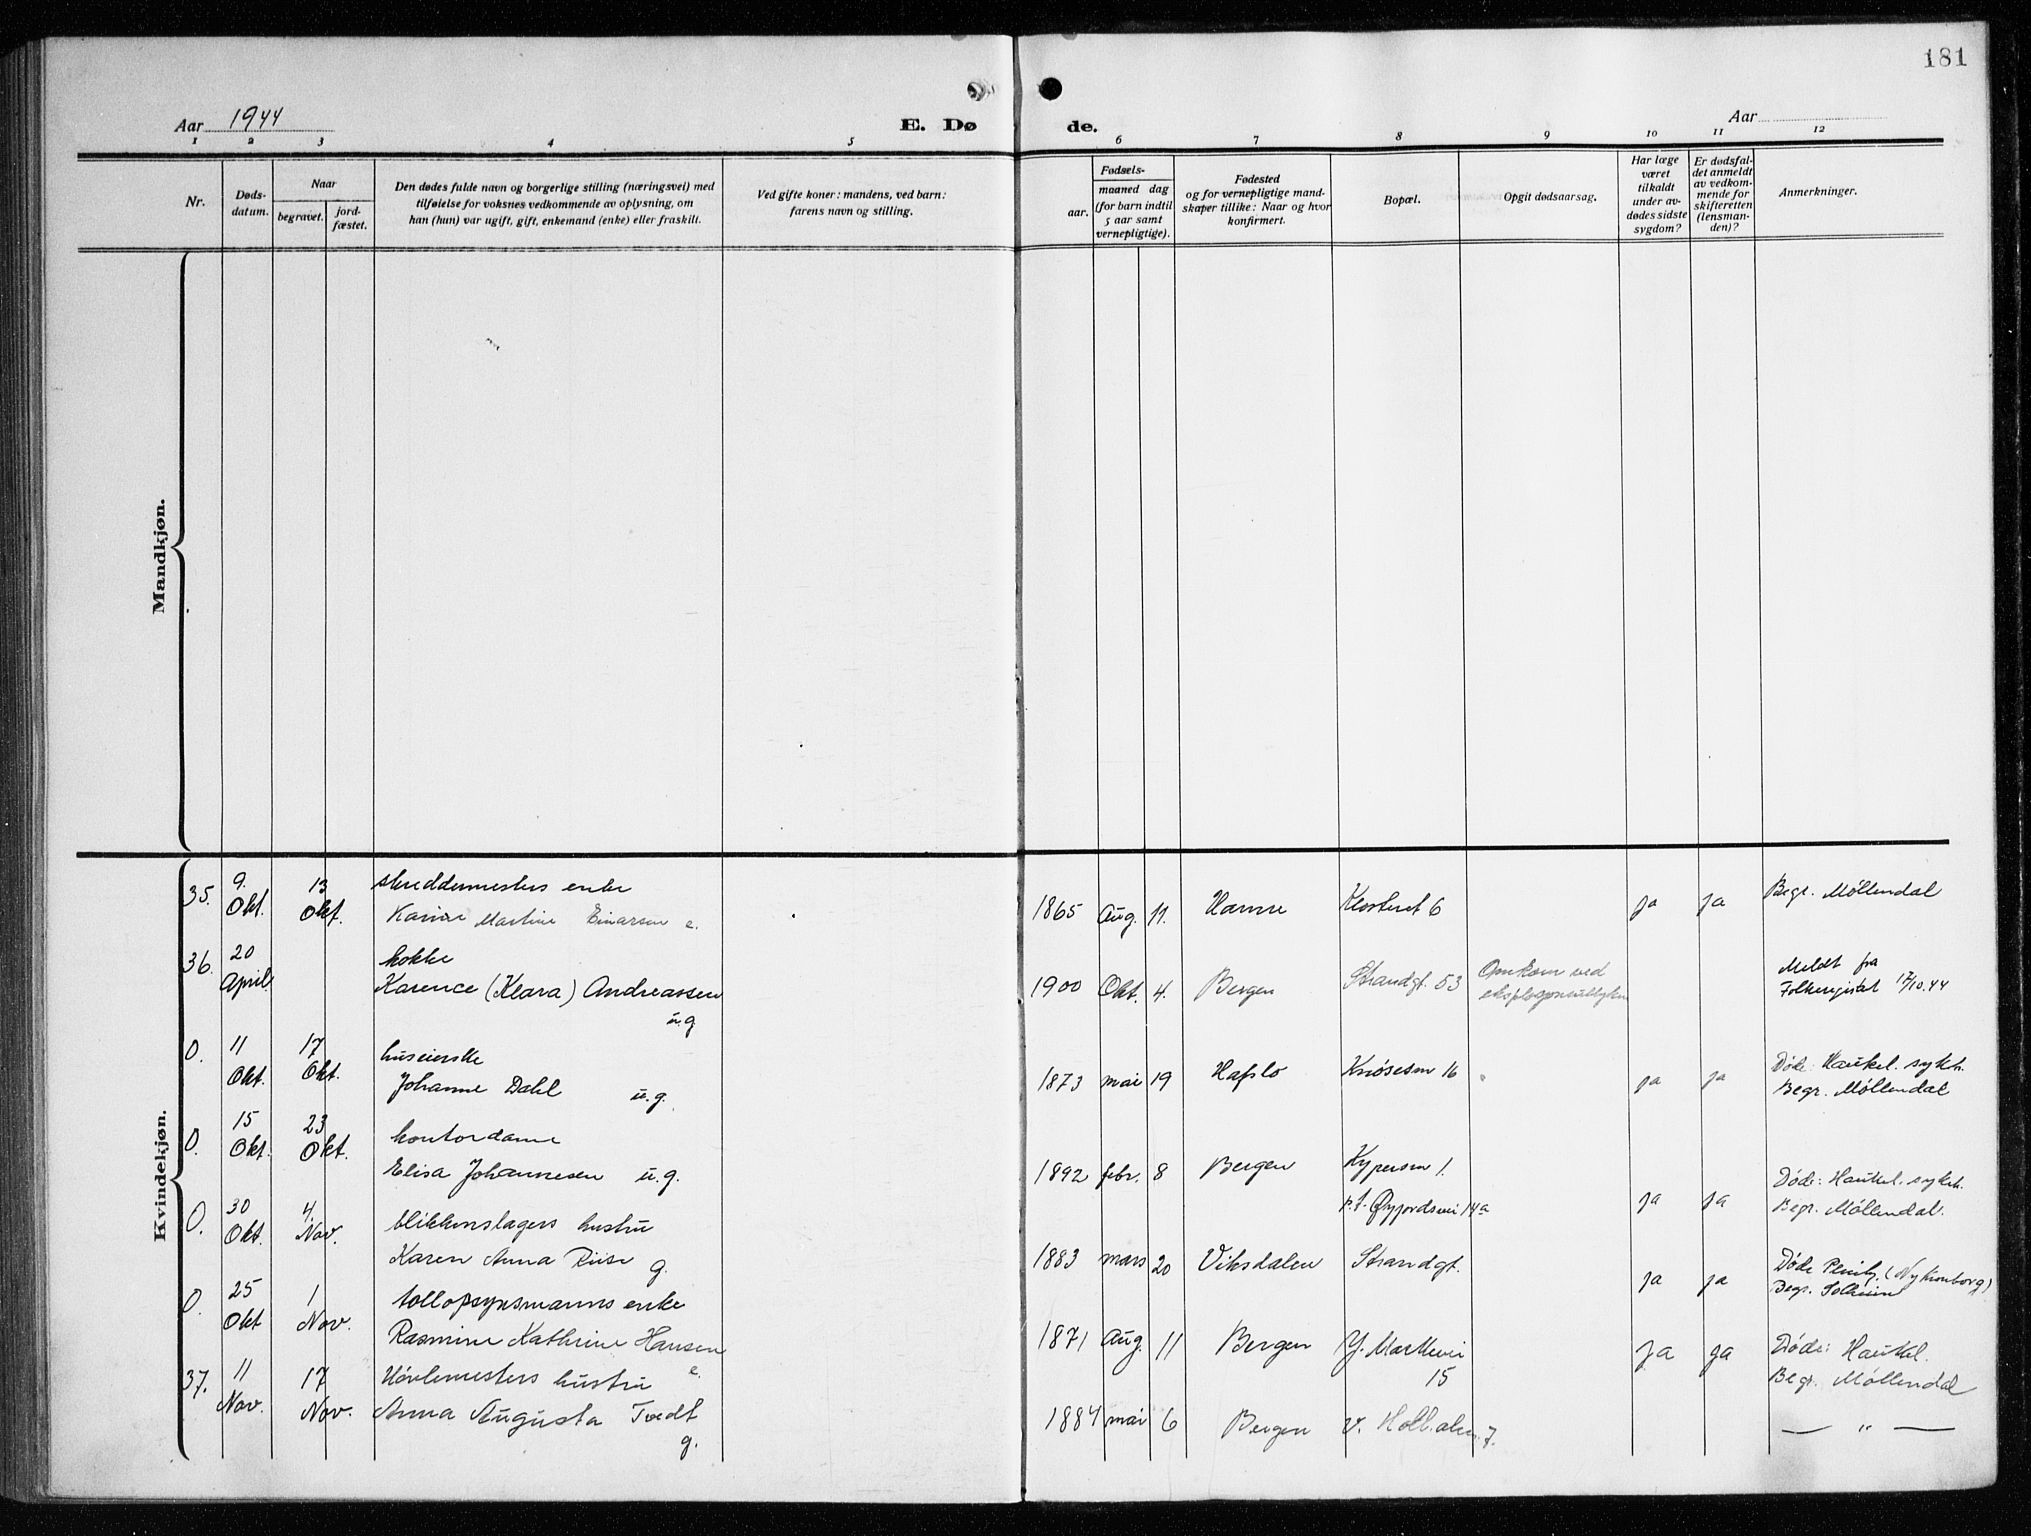 181
Aar 1944
E. Dø
de.
Aar
1 2 3 4 5 6 7 8 9 10 11 12
Nr.
Døds-
datum.
Naar
begravet.
jord-
fæstet.
Den dødes fulde navn og borgerlige stilling (næringsvei) med
tilføielse for voksnes vedkommende av oplysning, om
han (hun) var ugift, gift, enkemand (enke) eller fraskilt.
Ved gifte koner: mandens, ved barn:
farens navn og stilling.
Fødsels-
aar.
maaned dag
(for barn indtil
5 aar samt
vernepligtige).
Fødested
og for vernepligtige mand-
skaper tillike: Naar og hvor
konfirmert.
Bopæl.
Opgit dødsaarsag.
Har læge
været
tilkaldt
under av-
dødes sidste
sygdom?
Er dødsfal-
det anmeldt
av vedkom-
mende for
skifteretten
(lensman-
den)?
Anmerkninger.
Mandkjøn.
Kvindekjøn.
35. 9. Okt. 13 Okt. skreddermesters enke
Martine Einarsen e.
1865 Aug. 11. Klosteret 6 ja ja Begr. Møllendal
36. 20 April kokke
Karence (Klara) Andreassen
u.g
1900 Okt. 4. Bergen Strandgt. 53 Omkom ved
eksplosjonsulykken
Meldt fra
Folkeregistret 17/10.44
0. 11 Okt. 17 Okt. huseierske
Johanne Dahl u.g.
1873 mai 19 Hafslo Knøsesm 16 ja ja Døde: Haukel. sykh.
Begr. Møllendal
0. 15 Okt. 23 Okt. kontordame
Elisa Johannesen u.g.
1892 febr. 8 Bergen Kypersm 1.
p.t. 14a ja ja Døde: Haukel. sykeh.
Begr. Møllendal.
0. 30 Okt. 4. Nov. blikkenslagers hustru
Karen Anna Riise g.
1883 mars 20 Viksdalen Strandgt. ja ja Døde (Nykronborg)
Begr. Solheim
0. 25 Okt 1 Nov. tollopsynsmanns enke
Rasmine Kathrine Hansen
e.
1871 Aug. 11 Bergen Y. Markevei
15 ja ja Døde: Haukel.
Begr. Møllendal
37. 11 Nov. 17 Nov. hustru
Anna Augusta Tvedt
g.
1884 mai 6 Bergen v. 7. — " —